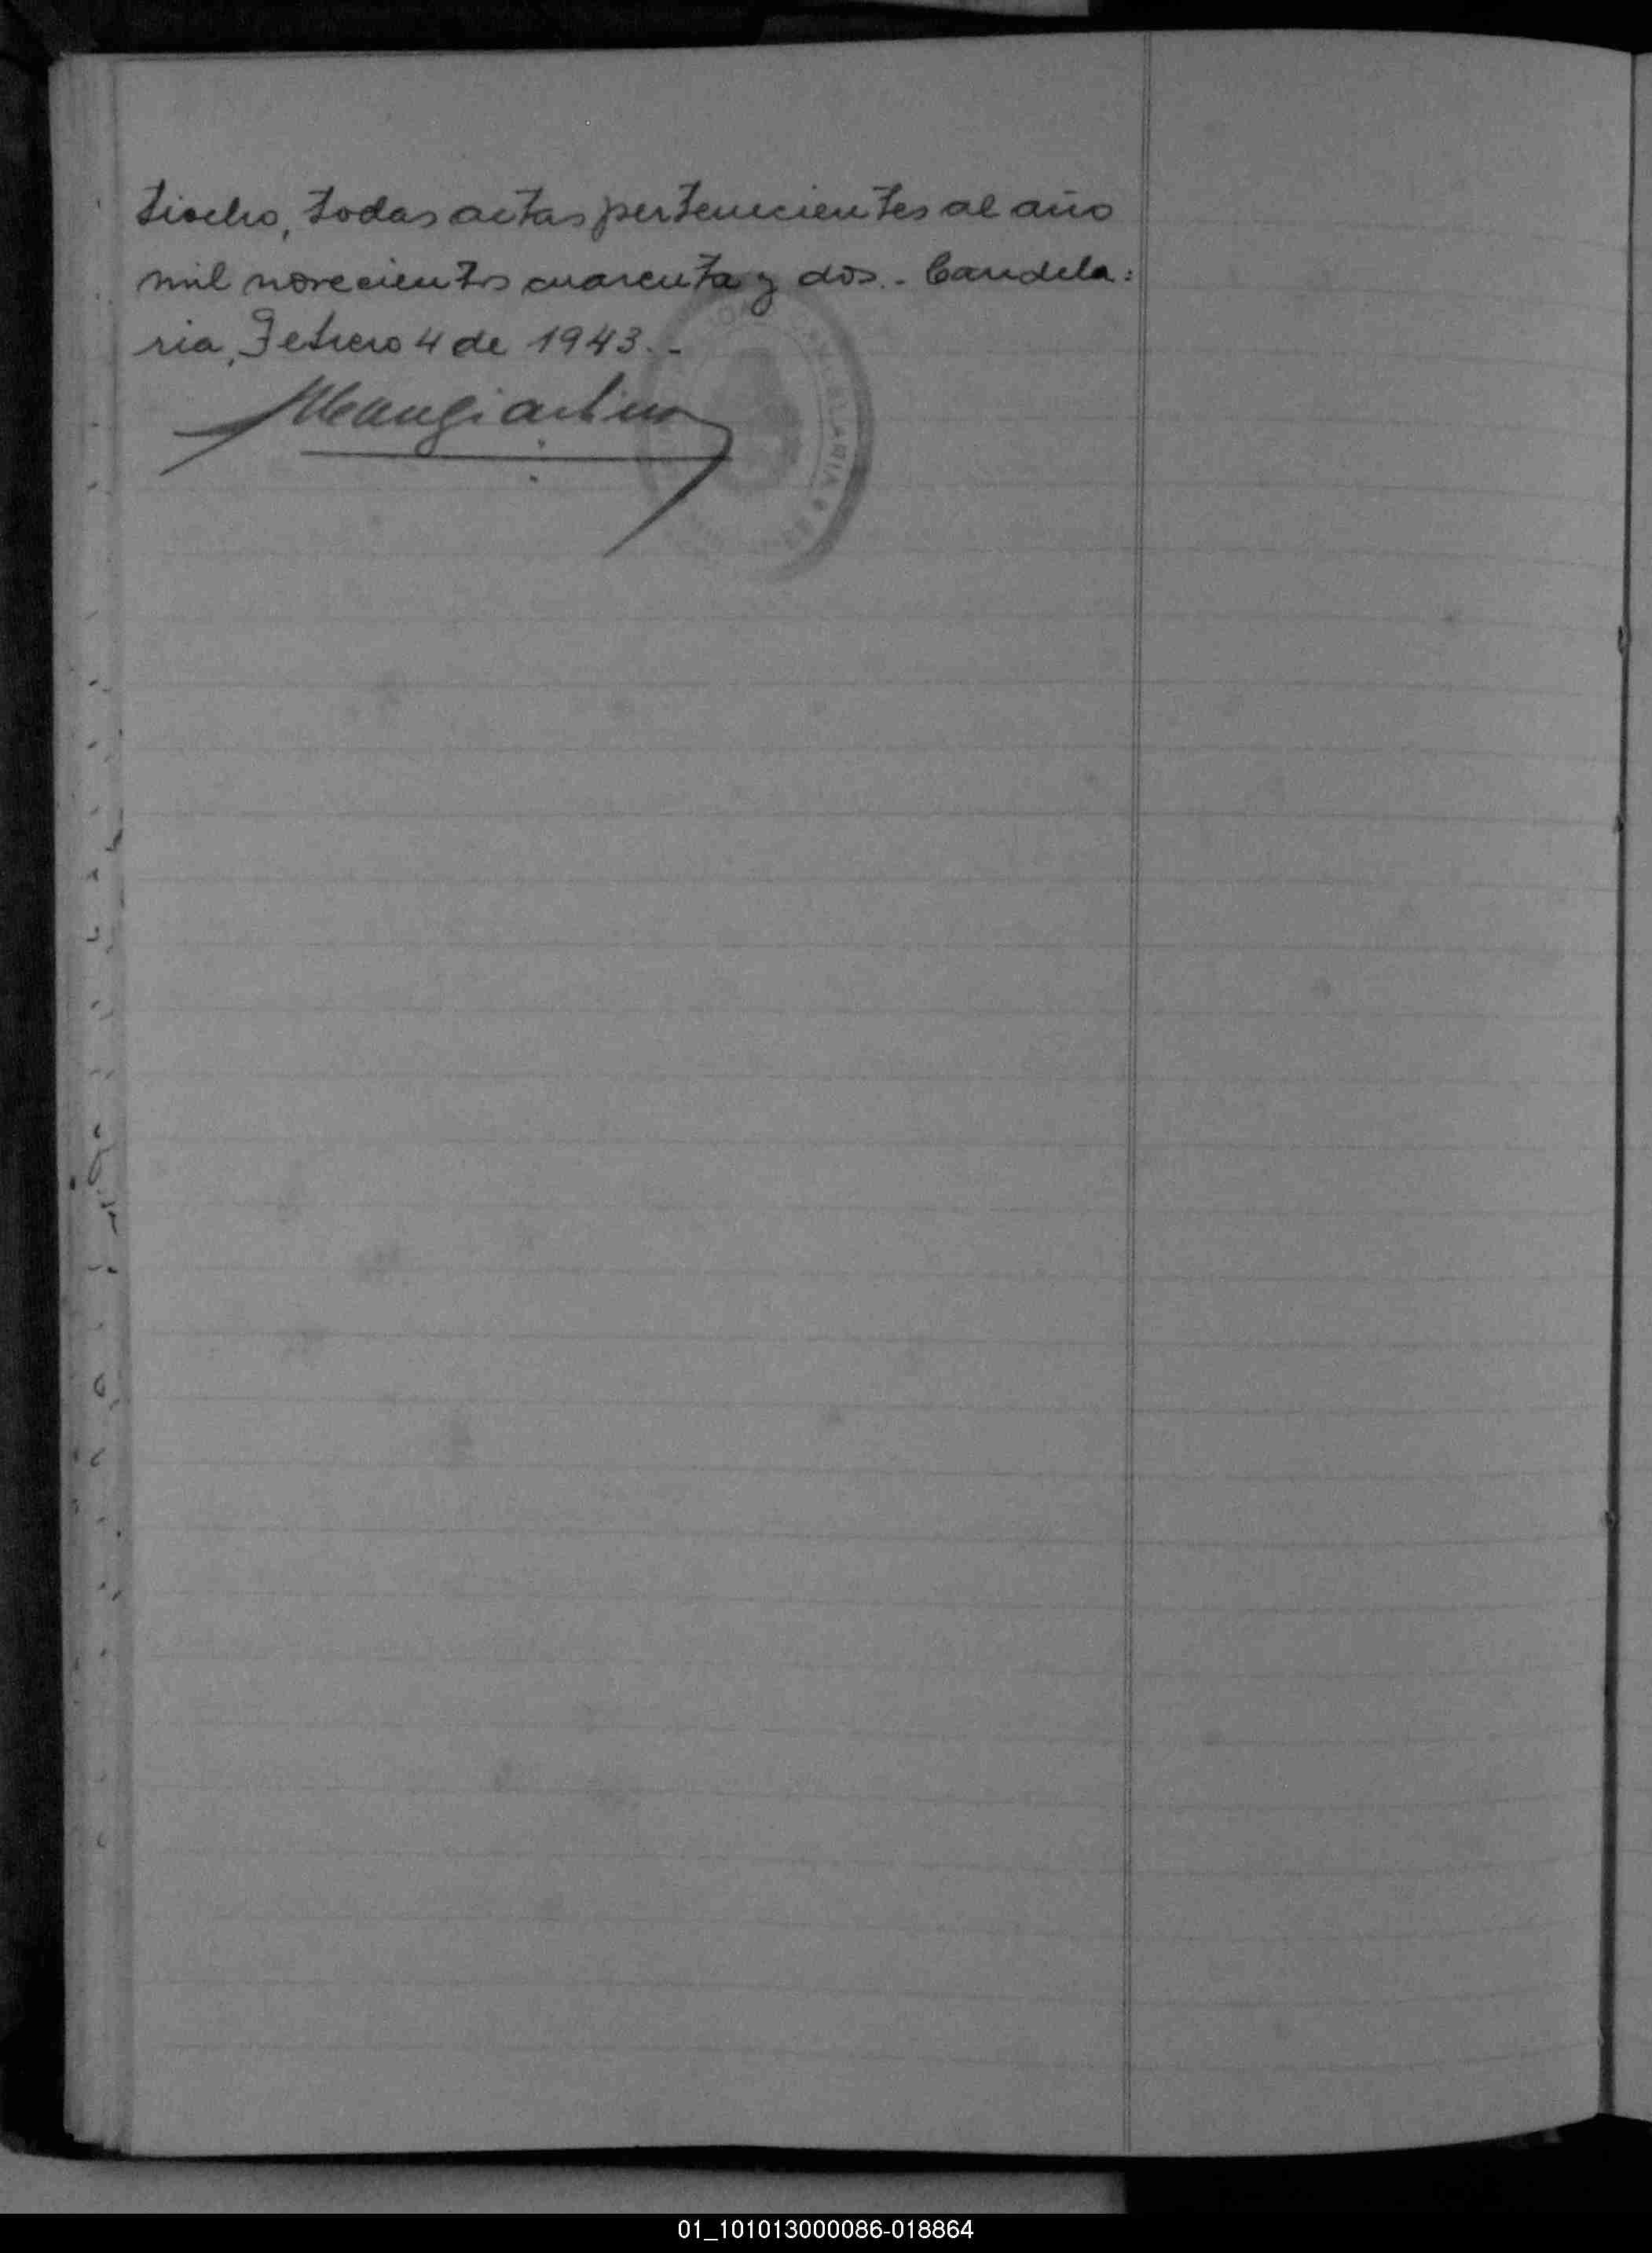 tiocho, todas actas pertenecientes al año
mil novecientos cuarenta y dos.- Candela=
ria, Febrero 4 de 1943.-
CANDELARIA
01_101013000086-018864